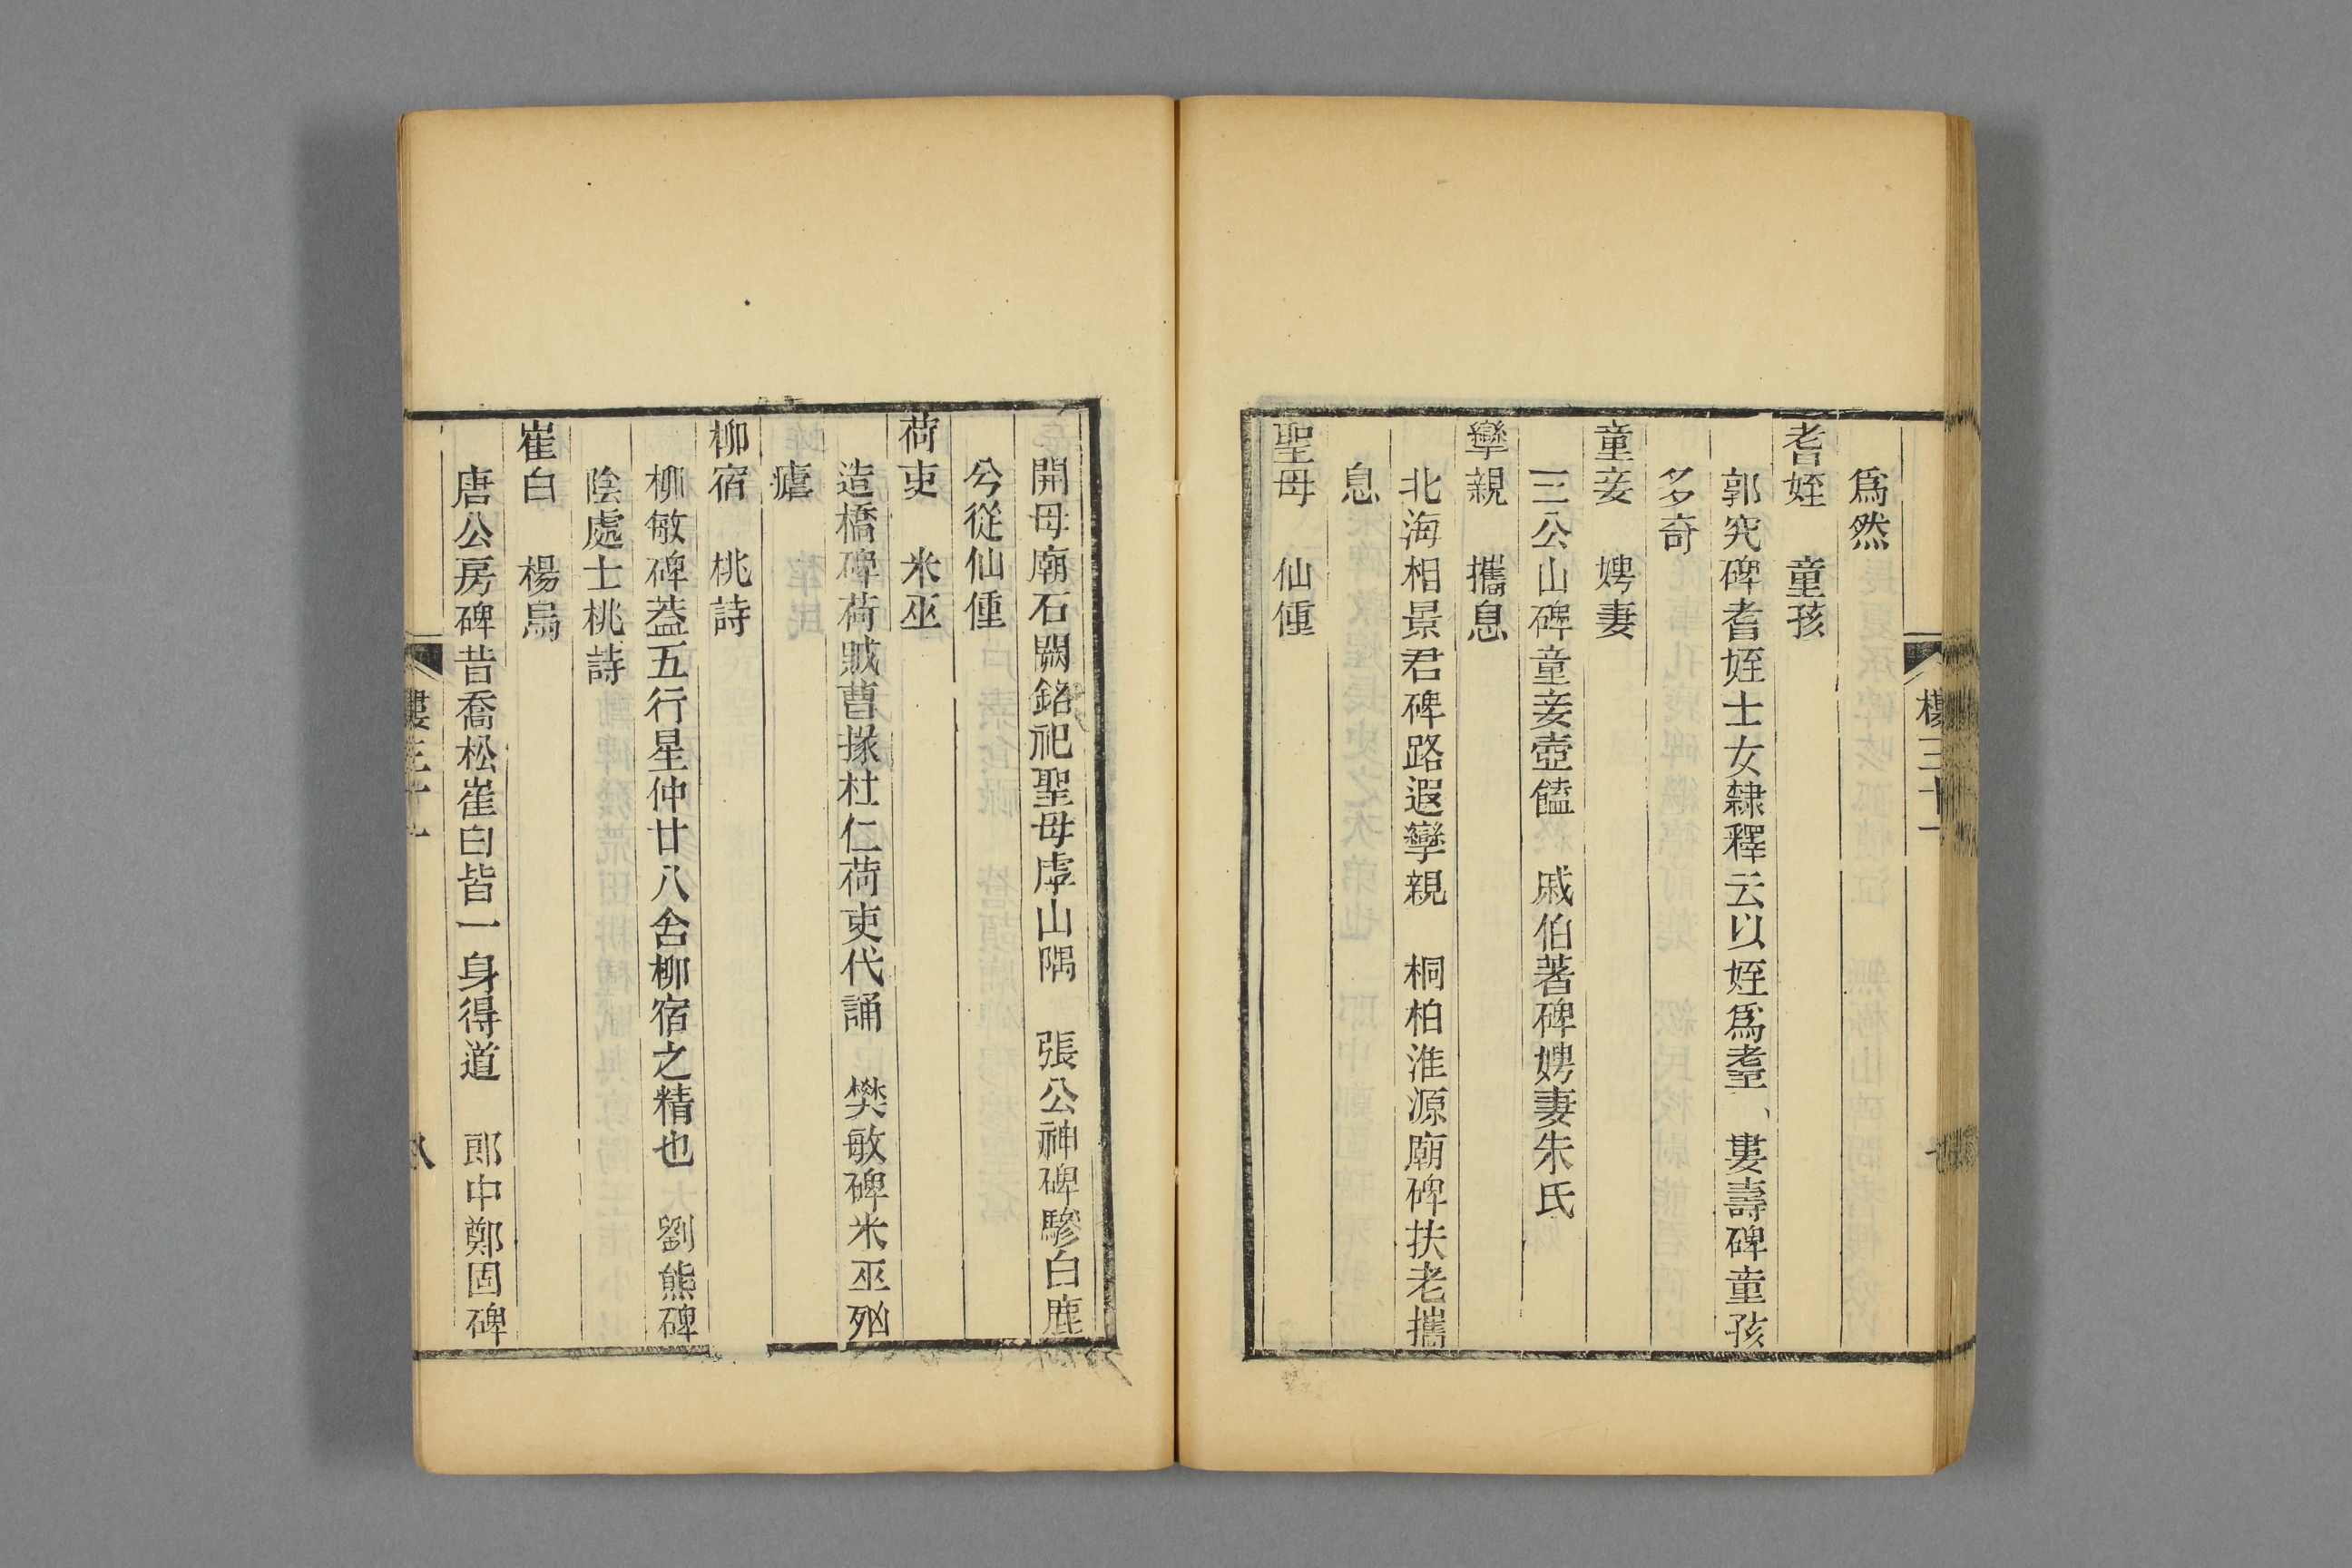 爲然
耆姪　童孩
郭究碑耆姪士女隸釋云以姪爲耋、婁壽碑童孩
多奇
童妾　娉妻
三公山碑童妾壺饁　戚伯著碑娉妻朱氏
孿親　攜息
北海相景君碑路遐孿親　桐柏淮源廟碑扶老攜
息
聖母　仙偅
開母廟石闕銘祀聖母虖山隅　張公神碑驂白鹿
兮從仙偅
荷吏　米巫
造橋碑荷賊曹掾杜仁荷吏代誦　樊敏碑米巫殈
瘧
柳宿　桃詩
柳敏碑葢五行星仲廿八舍柳宿之精也　劉熊碑
陰處士桃詩
崔白　楊烏
唐公房碑昔喬松崔白皆一身得道　郎中鄭固碑